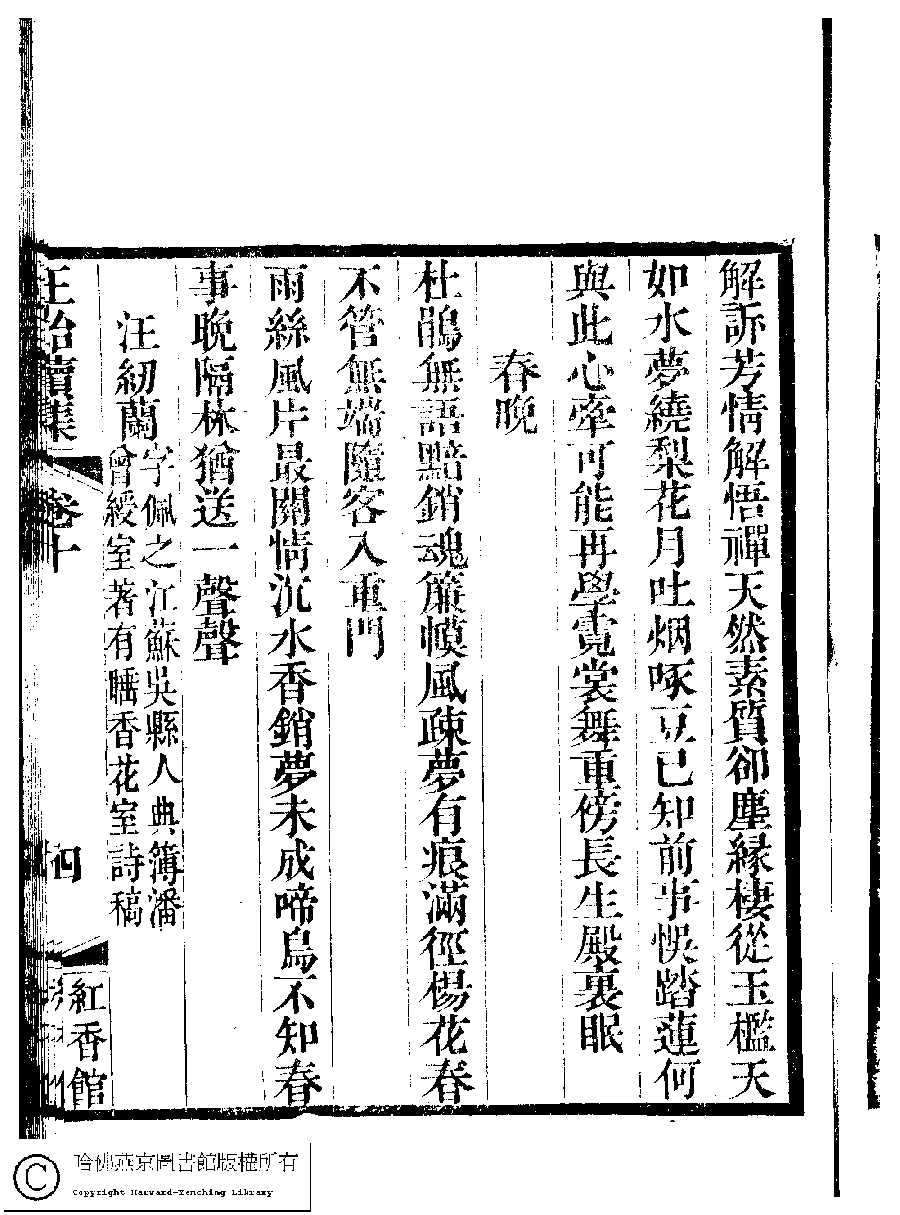 解訴芳情解悟禪天然素質卻塵緣棲從玉檻天
如水夢繞梨花月吐烟啄豆已知前事悞踏蓮何
與此心牽可能再學霓裳舞重傍長生殿裏眠
春晚
杜鵑無語黯銷魂簾幙風疎夢有痕滿徑楊花春
不管無端隨客入重門
雨絲風片最關情沉水香銷夢未成啼鳥不知春
事晚隔林猶送一聲聲
汪紉蘭字佩之江蘇吳縣人典簿潘
曾綬室著有睡香花室詩稿
正始續集
卷十
四
紅香館
哈佛燕京圖書館版權所有
Copyright Harvard-Yenching Library